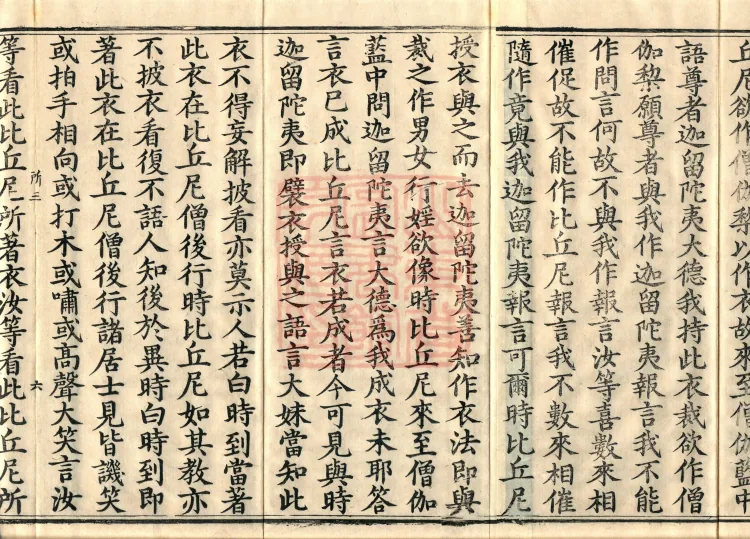 丘尼欲作僧伽梨以作衣故來至僧伽藍中
語尊者迦留陀夷大德我持此衣裁欲作僧
伽梨願尊者與我作迦留陀夷報言我不能
作問言何故不與我作報言汝等喜數來相
催促故不能作比丘尼報言我不數來相催
隨作竟與我迦留陀夷報言可爾時比丘尼
授衣與之而去迦留陀夷善知作衣法即與
裁之作男女行婬欲像時比丘尼來至僧伽
藍中問迦留陀夷言大德為我成衣未耶答
言衣已成比丘尼言衣若成者今可見與時
迦留陀夷即襞衣授與之語言大妹當知此
衣不得妄解披看亦莫示人若白時到當著
此衣在比丘尼僧後行時比丘尼如其教亦
不披衣看復不語人知後於異時白時到即
著此衣在比丘尼僧後行諸居士見皆譏笑
或拍手相向或打木或嘯或高聲大笑言汝
所三 六
等看此比丘尼所著衣汝等看此比丘尼所